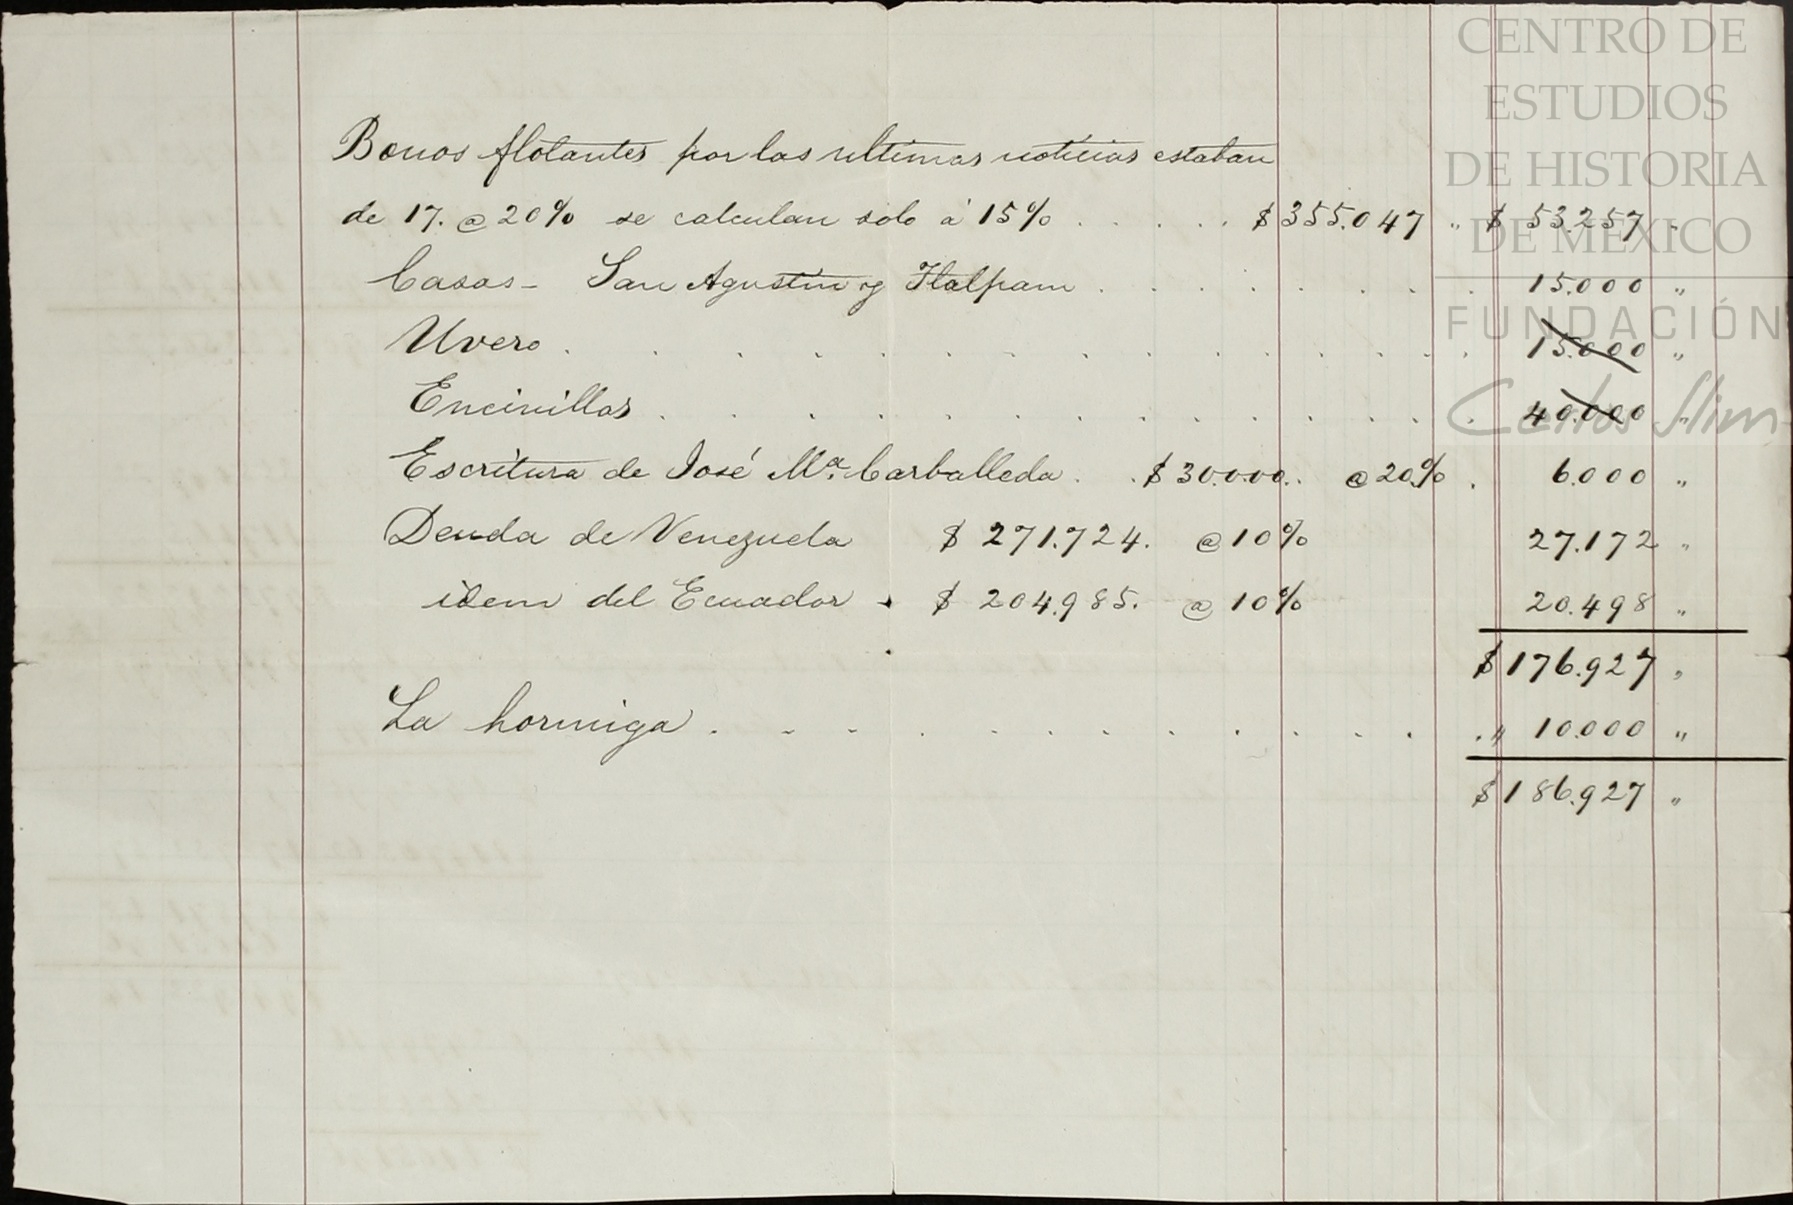 Bonos flotantes por las ultimas noticias estaban
de 17. @ 20% se calculan solo á 15% . . . . . $ 355.047 " $ 53.257 "
Casas - San Agustin y Tlalpam . . . . . . . 15.000 "
Uvero . . . . . . . . . . . . . . 15.000 "
Encinillas . . . . . . . . . . . . . 40.000 "
Escritura de José Ma. Carballeda . . $ 30.000. . @ 20% . 6.000 "
Deuda de Venezuela $ 271.724. @ 10% 27.172 "
idem del Ecuador . $ 204.985. @ 10% 20.498 "
$ 176.927 "
La hormiga . . . . . . . . . . . . " 10.000 "
$ 186.927 "
CENTRO DE
ESTUDIOS
DE HISTORIA
DE MÉXICO
FUNDACIÓN
Carlos Slim